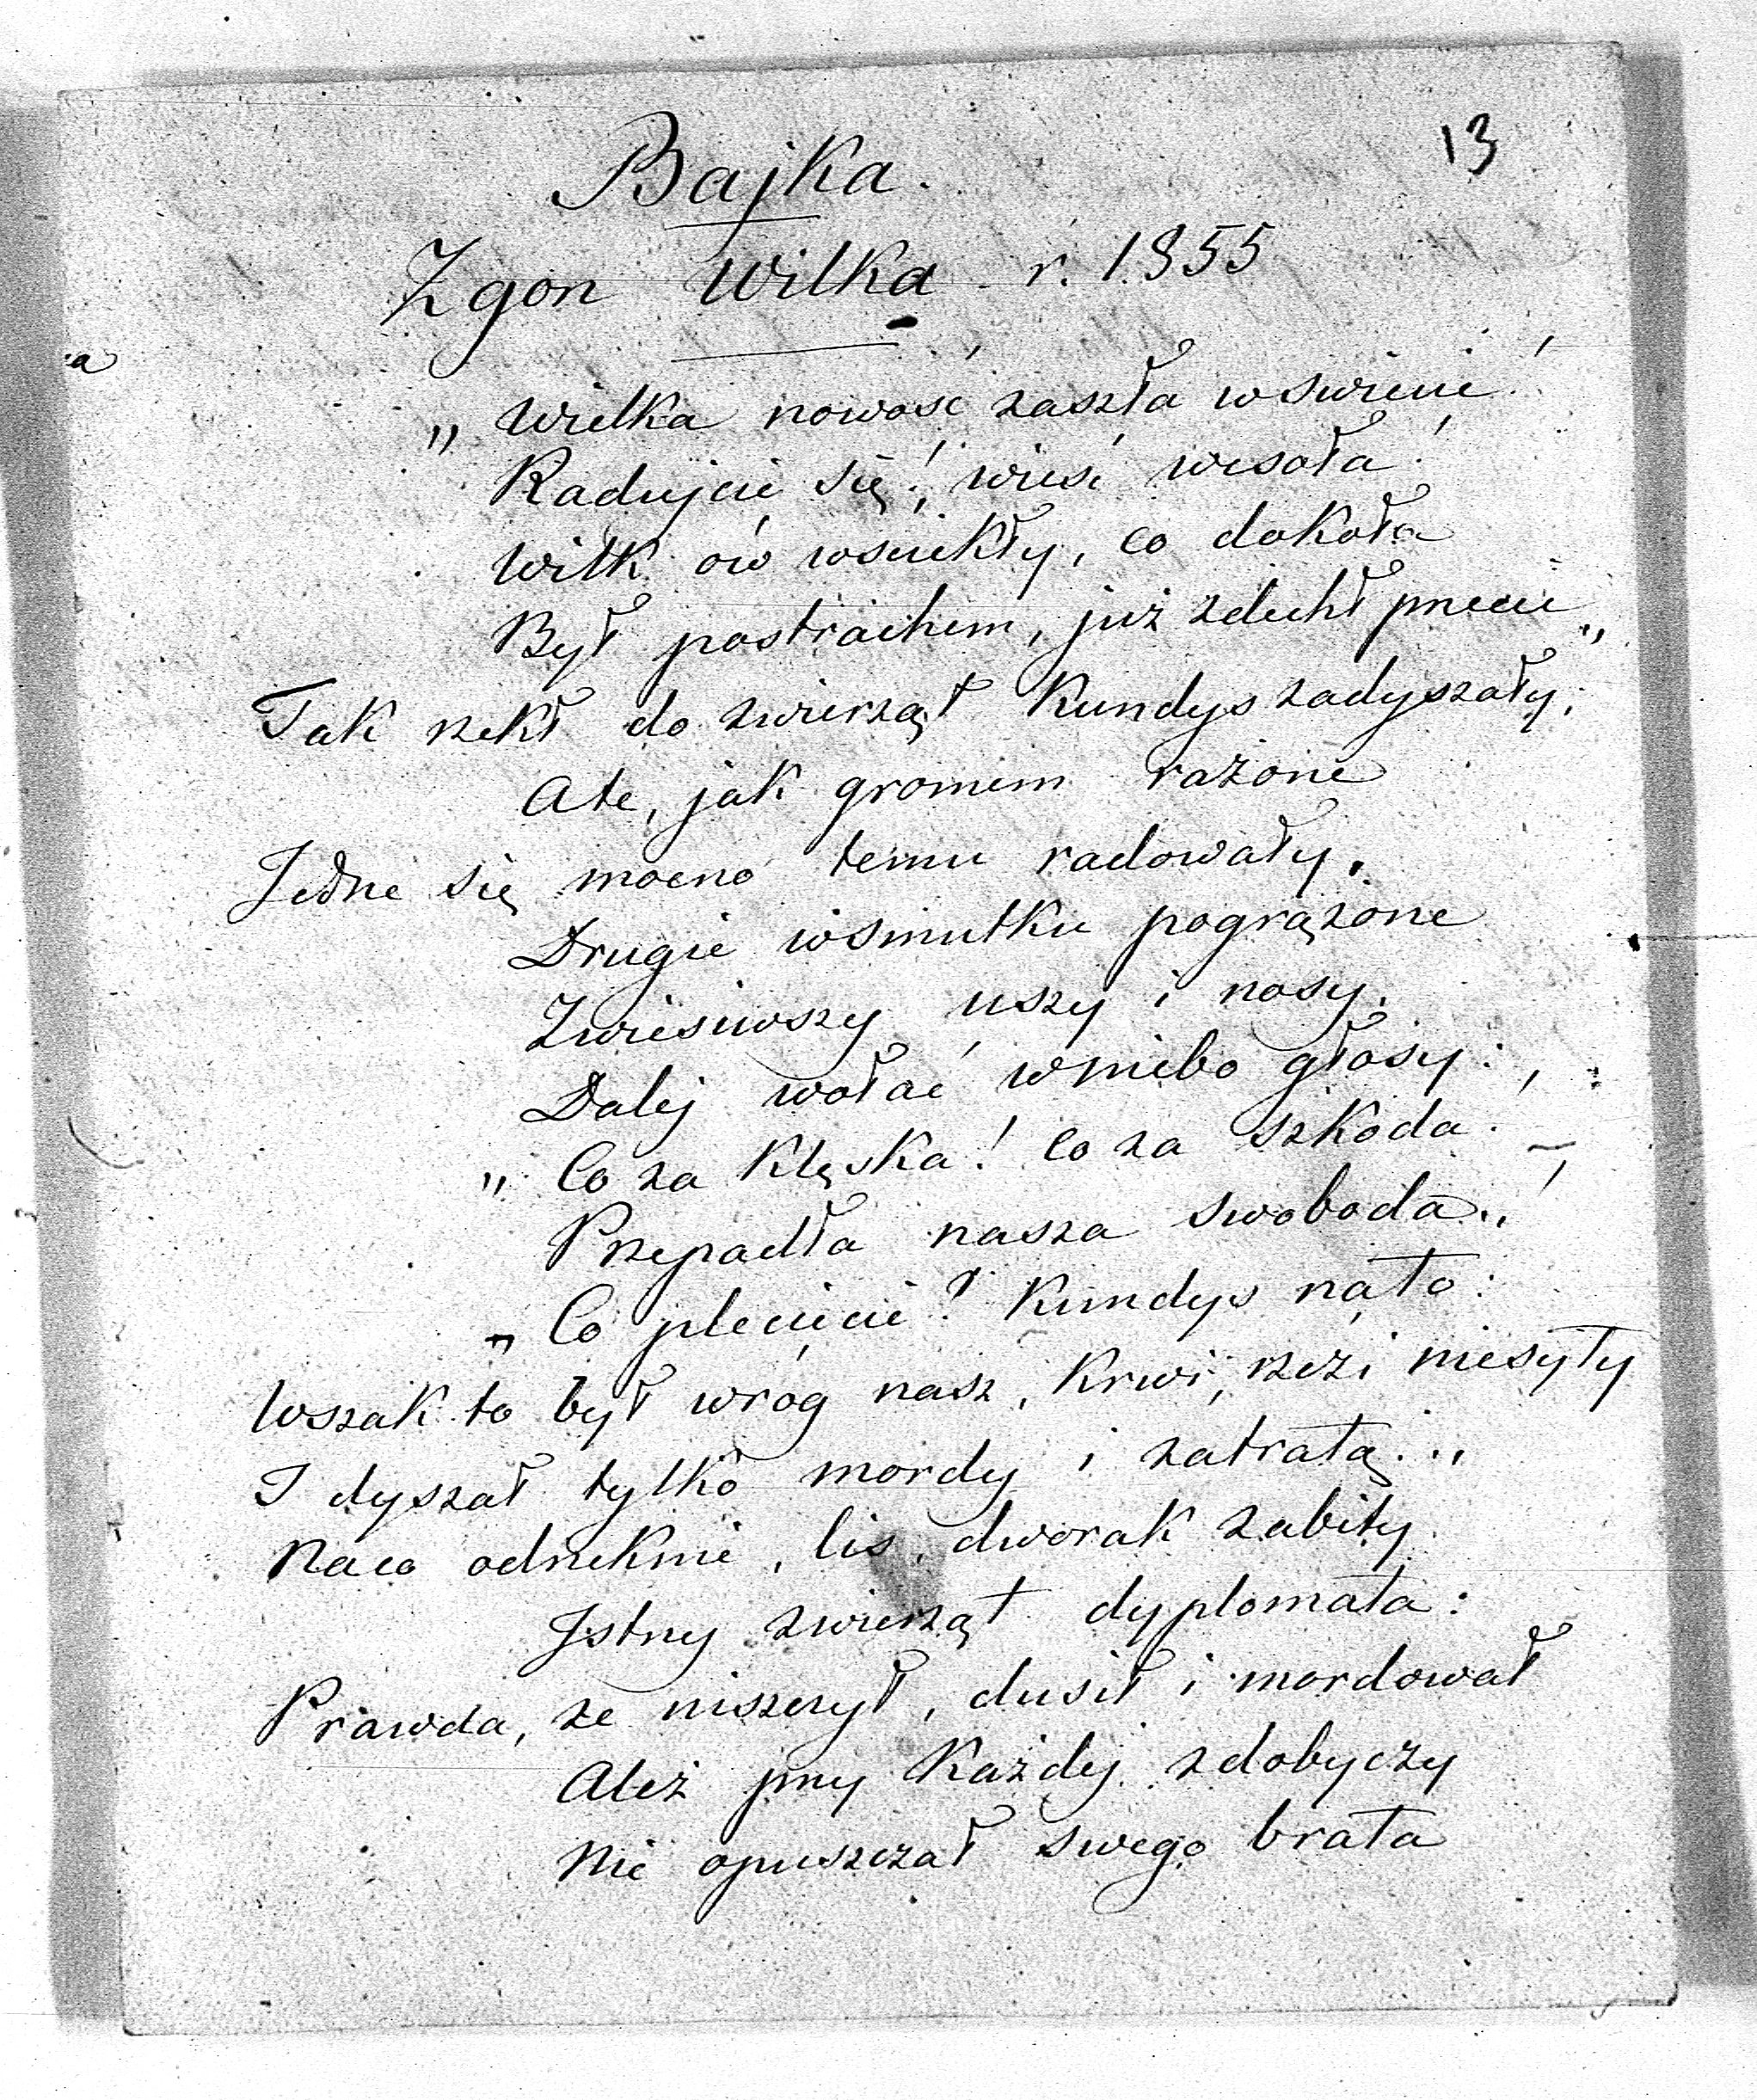 13
Bajka.
Zgon Wilka r. 1855
„Wielka nowość zaszła w świecie!
Radujcie się!, wieść wesoła!
Wilk ów wściekły, co dokoła
Był postrachem, już zdechł przecie„
Tak rzekł do zwierząt Kundys zadyszały;
Ale, jak gromem rażone
Jedne się mocno temu radowały,
Drugie w smutku pogrążone
Zwiesiwszy uszy i nosy,
Dalej wołać w niebo głosy:
„Co za Klęska! co za szkoda!
Przepadła nasza swoboda„!
„Co pleciecie? Kundys na to:
Wszak to był wróg nasz, Krwi, rzezi niesyty
I dyszał tylko mordy i zatratą„
Na co odrzeknie, lis, dworak zabity
Istny zwierząt dyplomata:
Prawda, że niszczył, dusił i mordował
Ależ przy Każdej zdobyczy
Nie opuszczał swego brata